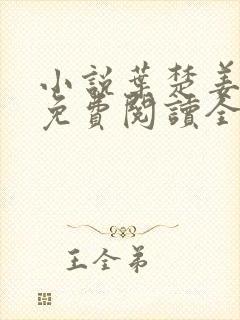 小説葉楚姜
免費閱讀全
王全弟